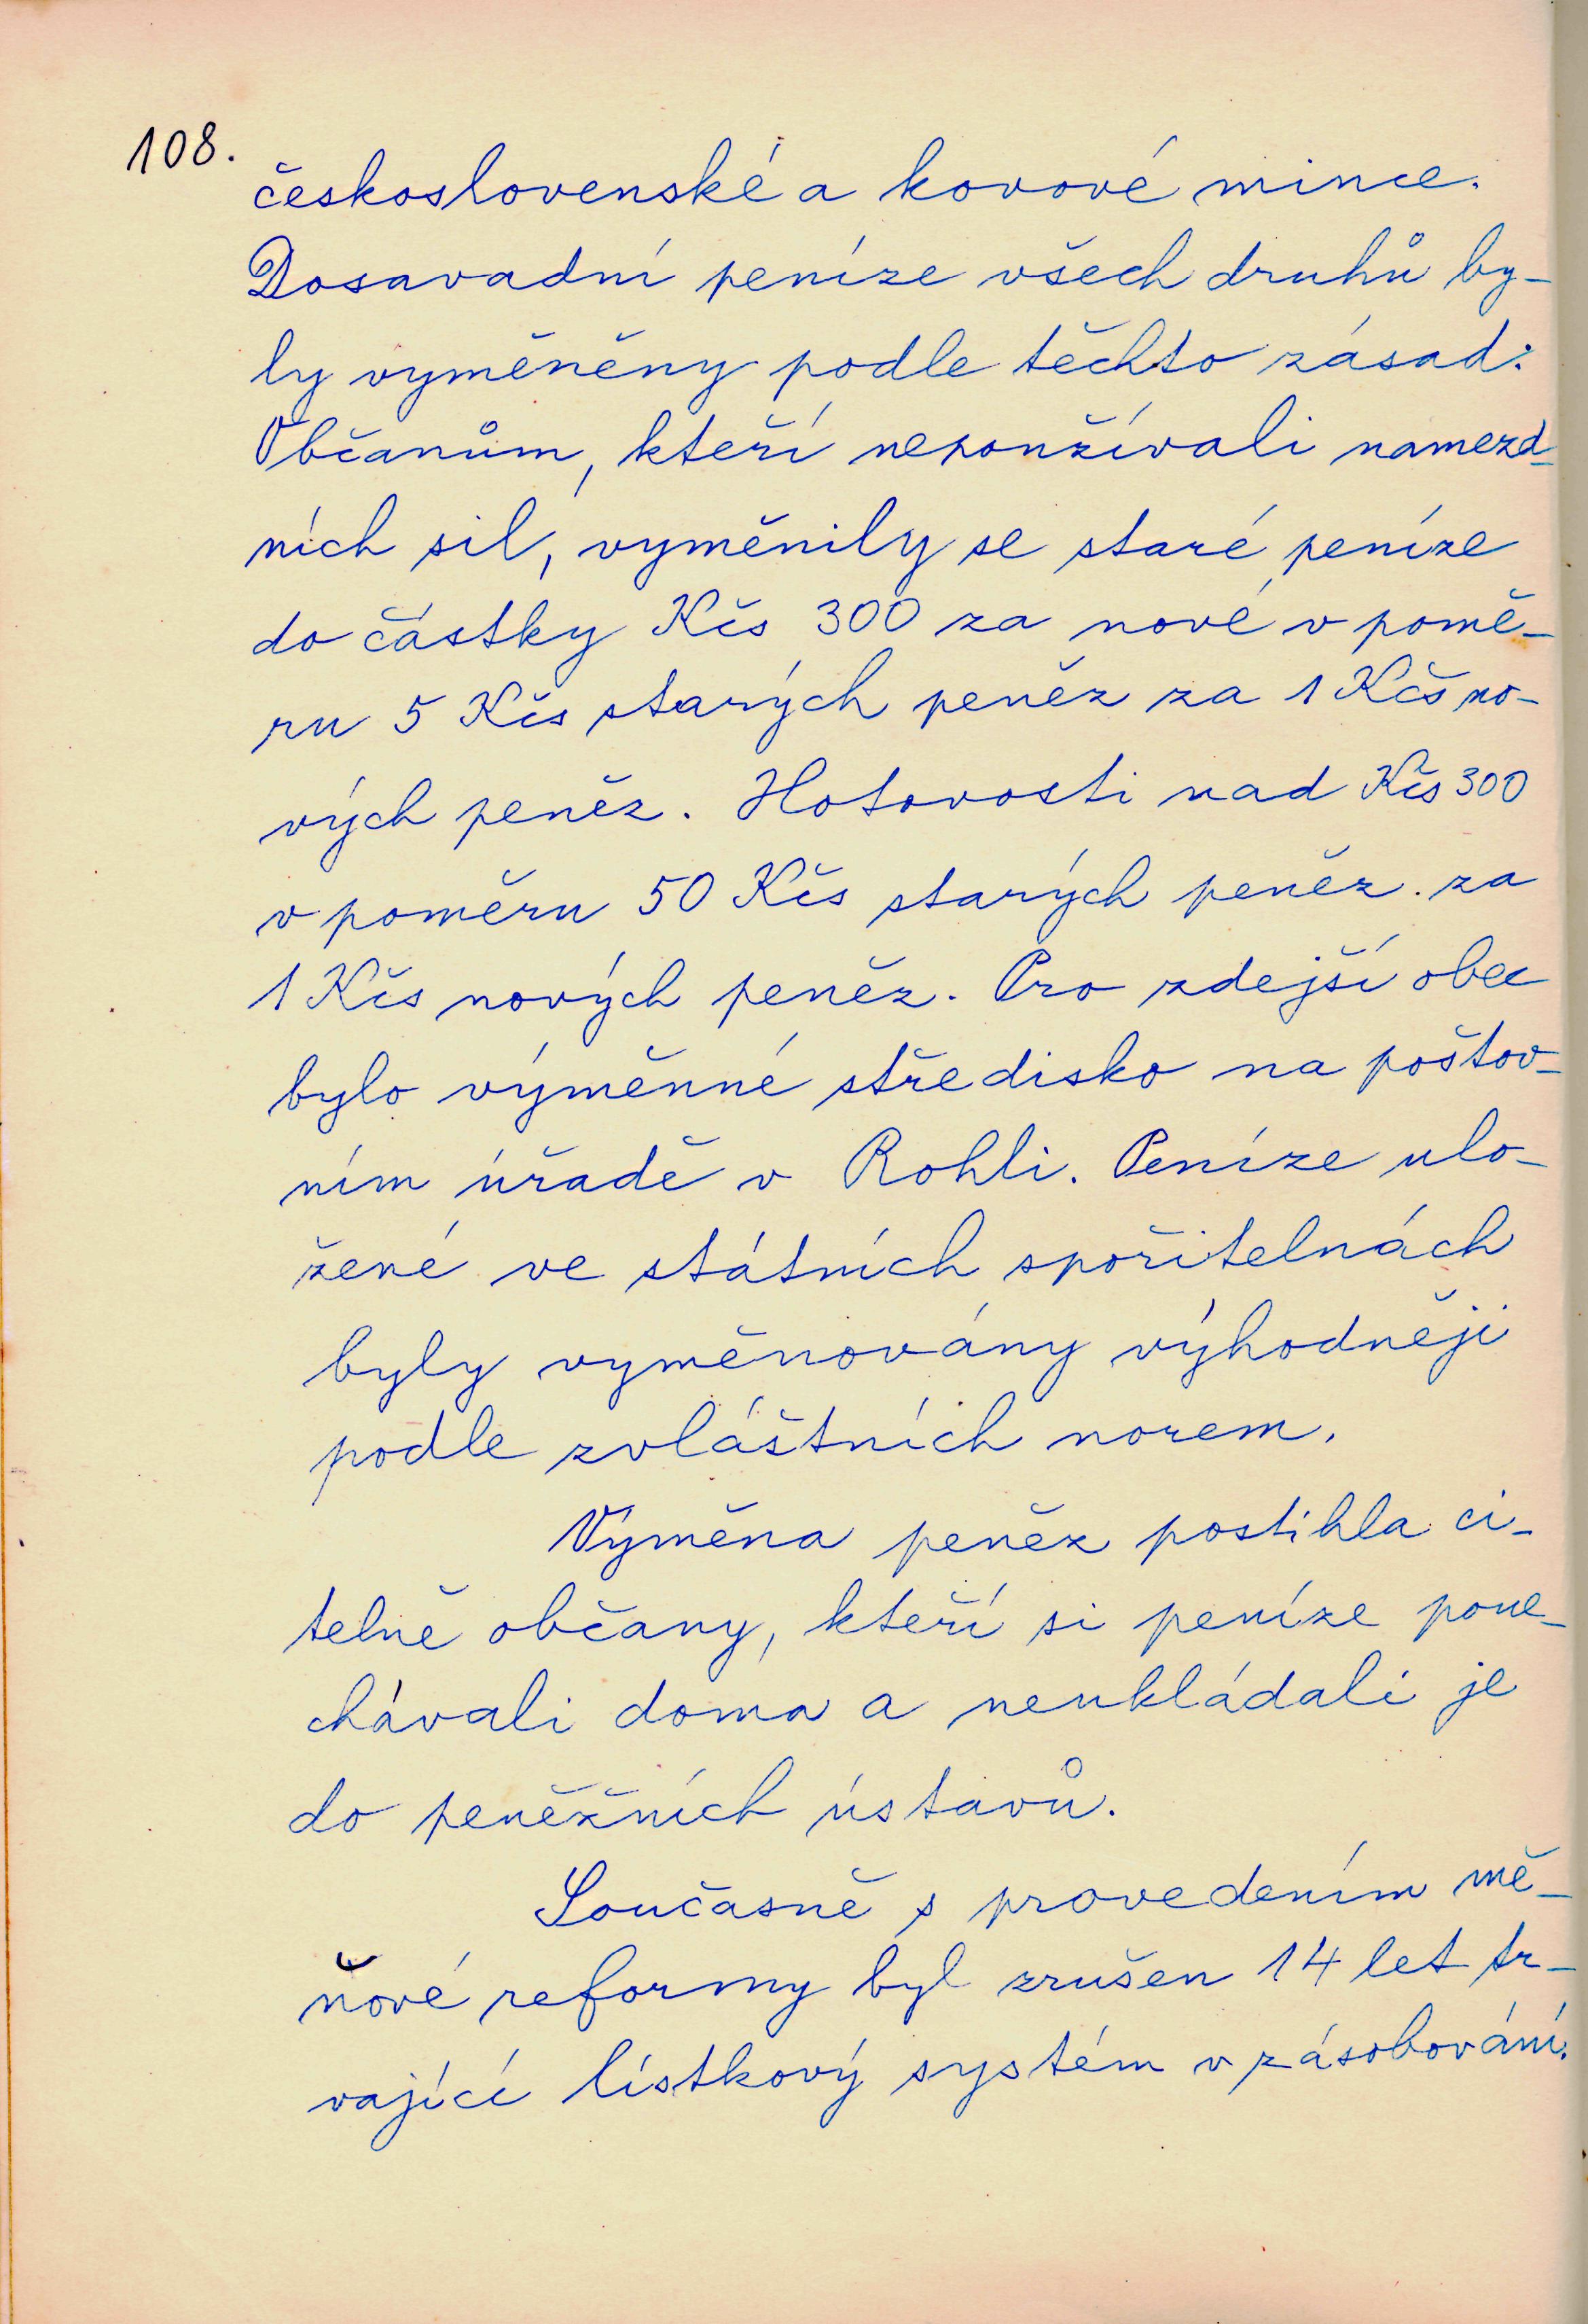 108.
československé a kovové mince.
Dosavadní peníze všech druhů by-
ly vyměněny podle těchto zásad:
Občanům, kteří nepoužívali namezd-
ních sil, vyměnily se staré peníze
do částky Kčs 300 za nové v pomě-
ru 5 Kčs starých peněz za 1 Kčs no-
vých peněz. Hotovosti nad Kčs 300
v poměru 50 Kčs starých peněz za
1 Kčs nových peněz. Pro zdejší obec
bylo výměnné středisko na poštov-
ním úřadě v Rohli. Peníze ulo-
žené ve státních spořitelnách
byly vyměnovány výhodněji
podle zvláštních norem.
Výměna peněz postihla ci-
telně občany, kteří si peníze pone-
chávali doma a neukládali je
do peněžních ústavů.
Současně s provedením mě-
nové reformy byl zrušen 14 let tr-
vající lístkový systém v zásobování.